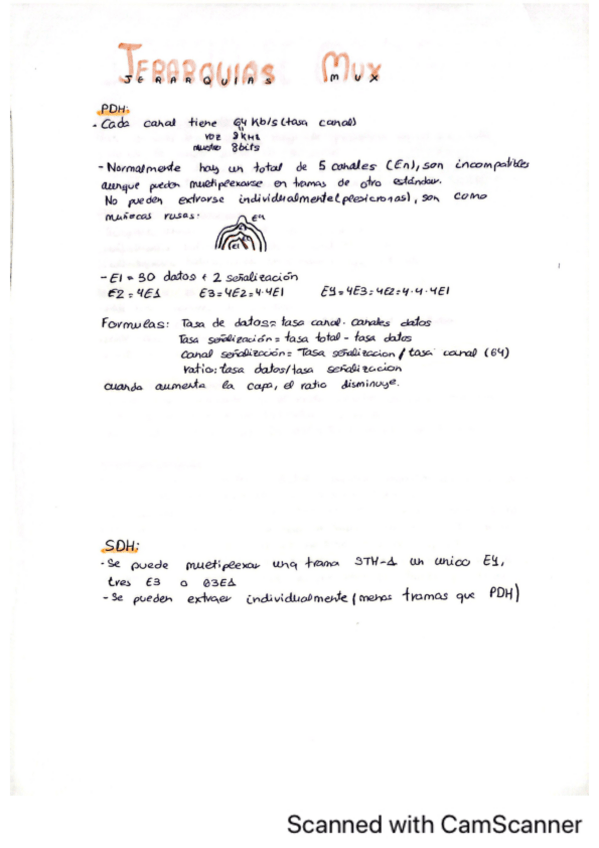 JERARQUIAS MUX
PDH:
- Cada canal tiene 64 Kb/s (tasa canal)
voz 8 KHz
muestro 8bits
- Normalmente hay un total de 5 canales (En), son incompatibles
aunque pueden multiplexarse en tramas de otro estándar.
No pueden extrarse individualmente (plesiocronas), son como
muñecas rusas:
E4
E1
- E1 = 30 datos + 2 señalización
E2 = 4E1 E3 = 4E2 = 4·4E1 E4 = 4E3 = 4E2 = 4·4·4E1
Formulas: Tasa de datos = tasa canal · canales datos
Tasa señalización = tasa total - tasa datos
Canal señalización = Tasa señalizacion / tasa canal (64)
ratio: tasa datos / tasa señalizacion
cuando aumenta la capa, el ratio disminuye.
SDH:
- Se puede multiplexar una trama STM-1 un unico E4,
tres E3 o 63E1
- Se pueden extraer individualmente (menos tramas que PDH)
Scanned with CamScanner